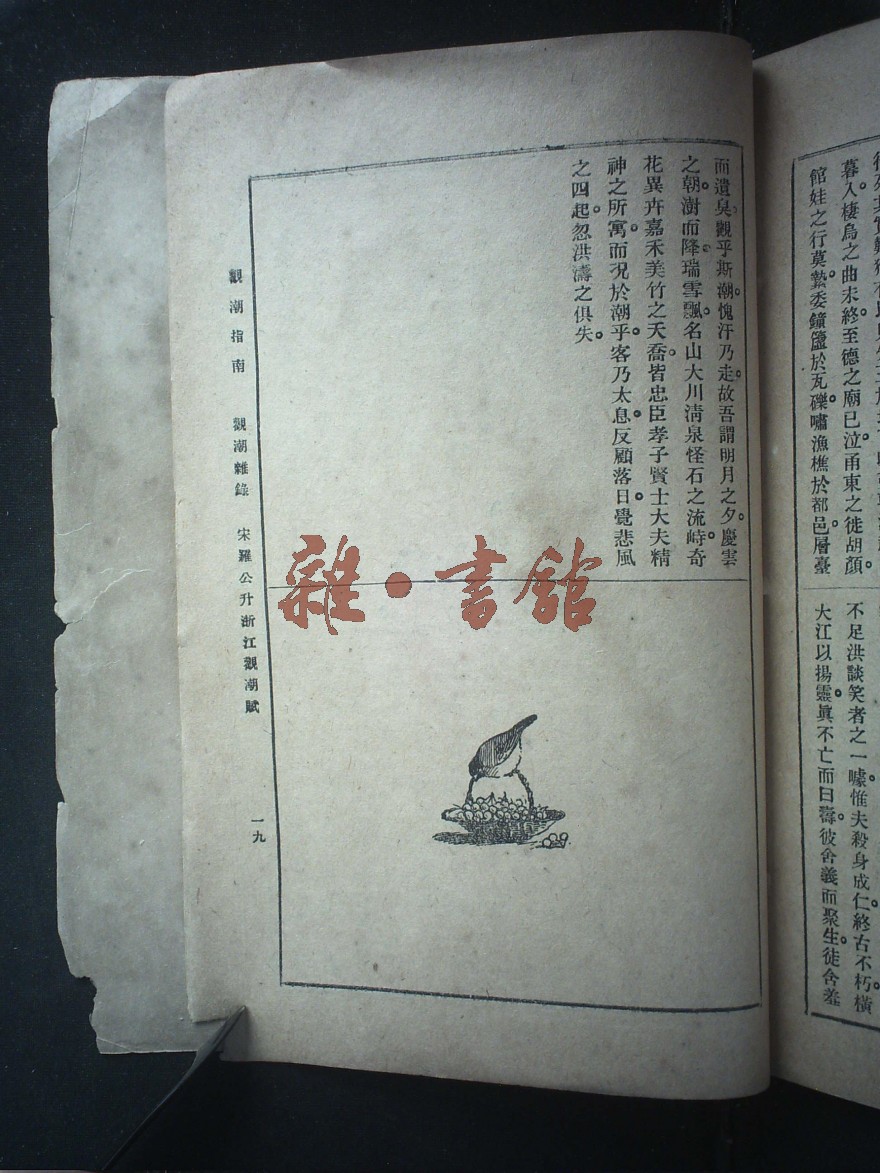 暮入。棲烏之曲未終。至德之廟已泣。甬東之徒胡顏。
館娃之行莫縶。委鐘簴於瓦礫。嘯漁樵於都邑。層臺
不足洪談笑者之一噱。惟夫殺身成仁。終古不朽。橫
大江以揚靈。眞不亡而曰壽。彼舍義而聚生。徒含羞
而遺臭。觀乎斯潮。愧汗乃走。故吾謂明月之夕。慶雲
之朝。澍而降。瑞雪飄。名山大川清泉怪石之流峙。奇
花異卉嘉禾美竹之夭喬。皆忠臣孝子賢士大夫精
神之所寓。而況於潮乎。客乃太息。反顧落日。覺悲風
之四起。忽洪濤之俱失。
觀潮指南 觀潮雜錄 宋羅公升浙江觀潮賦 一九
雜·書館